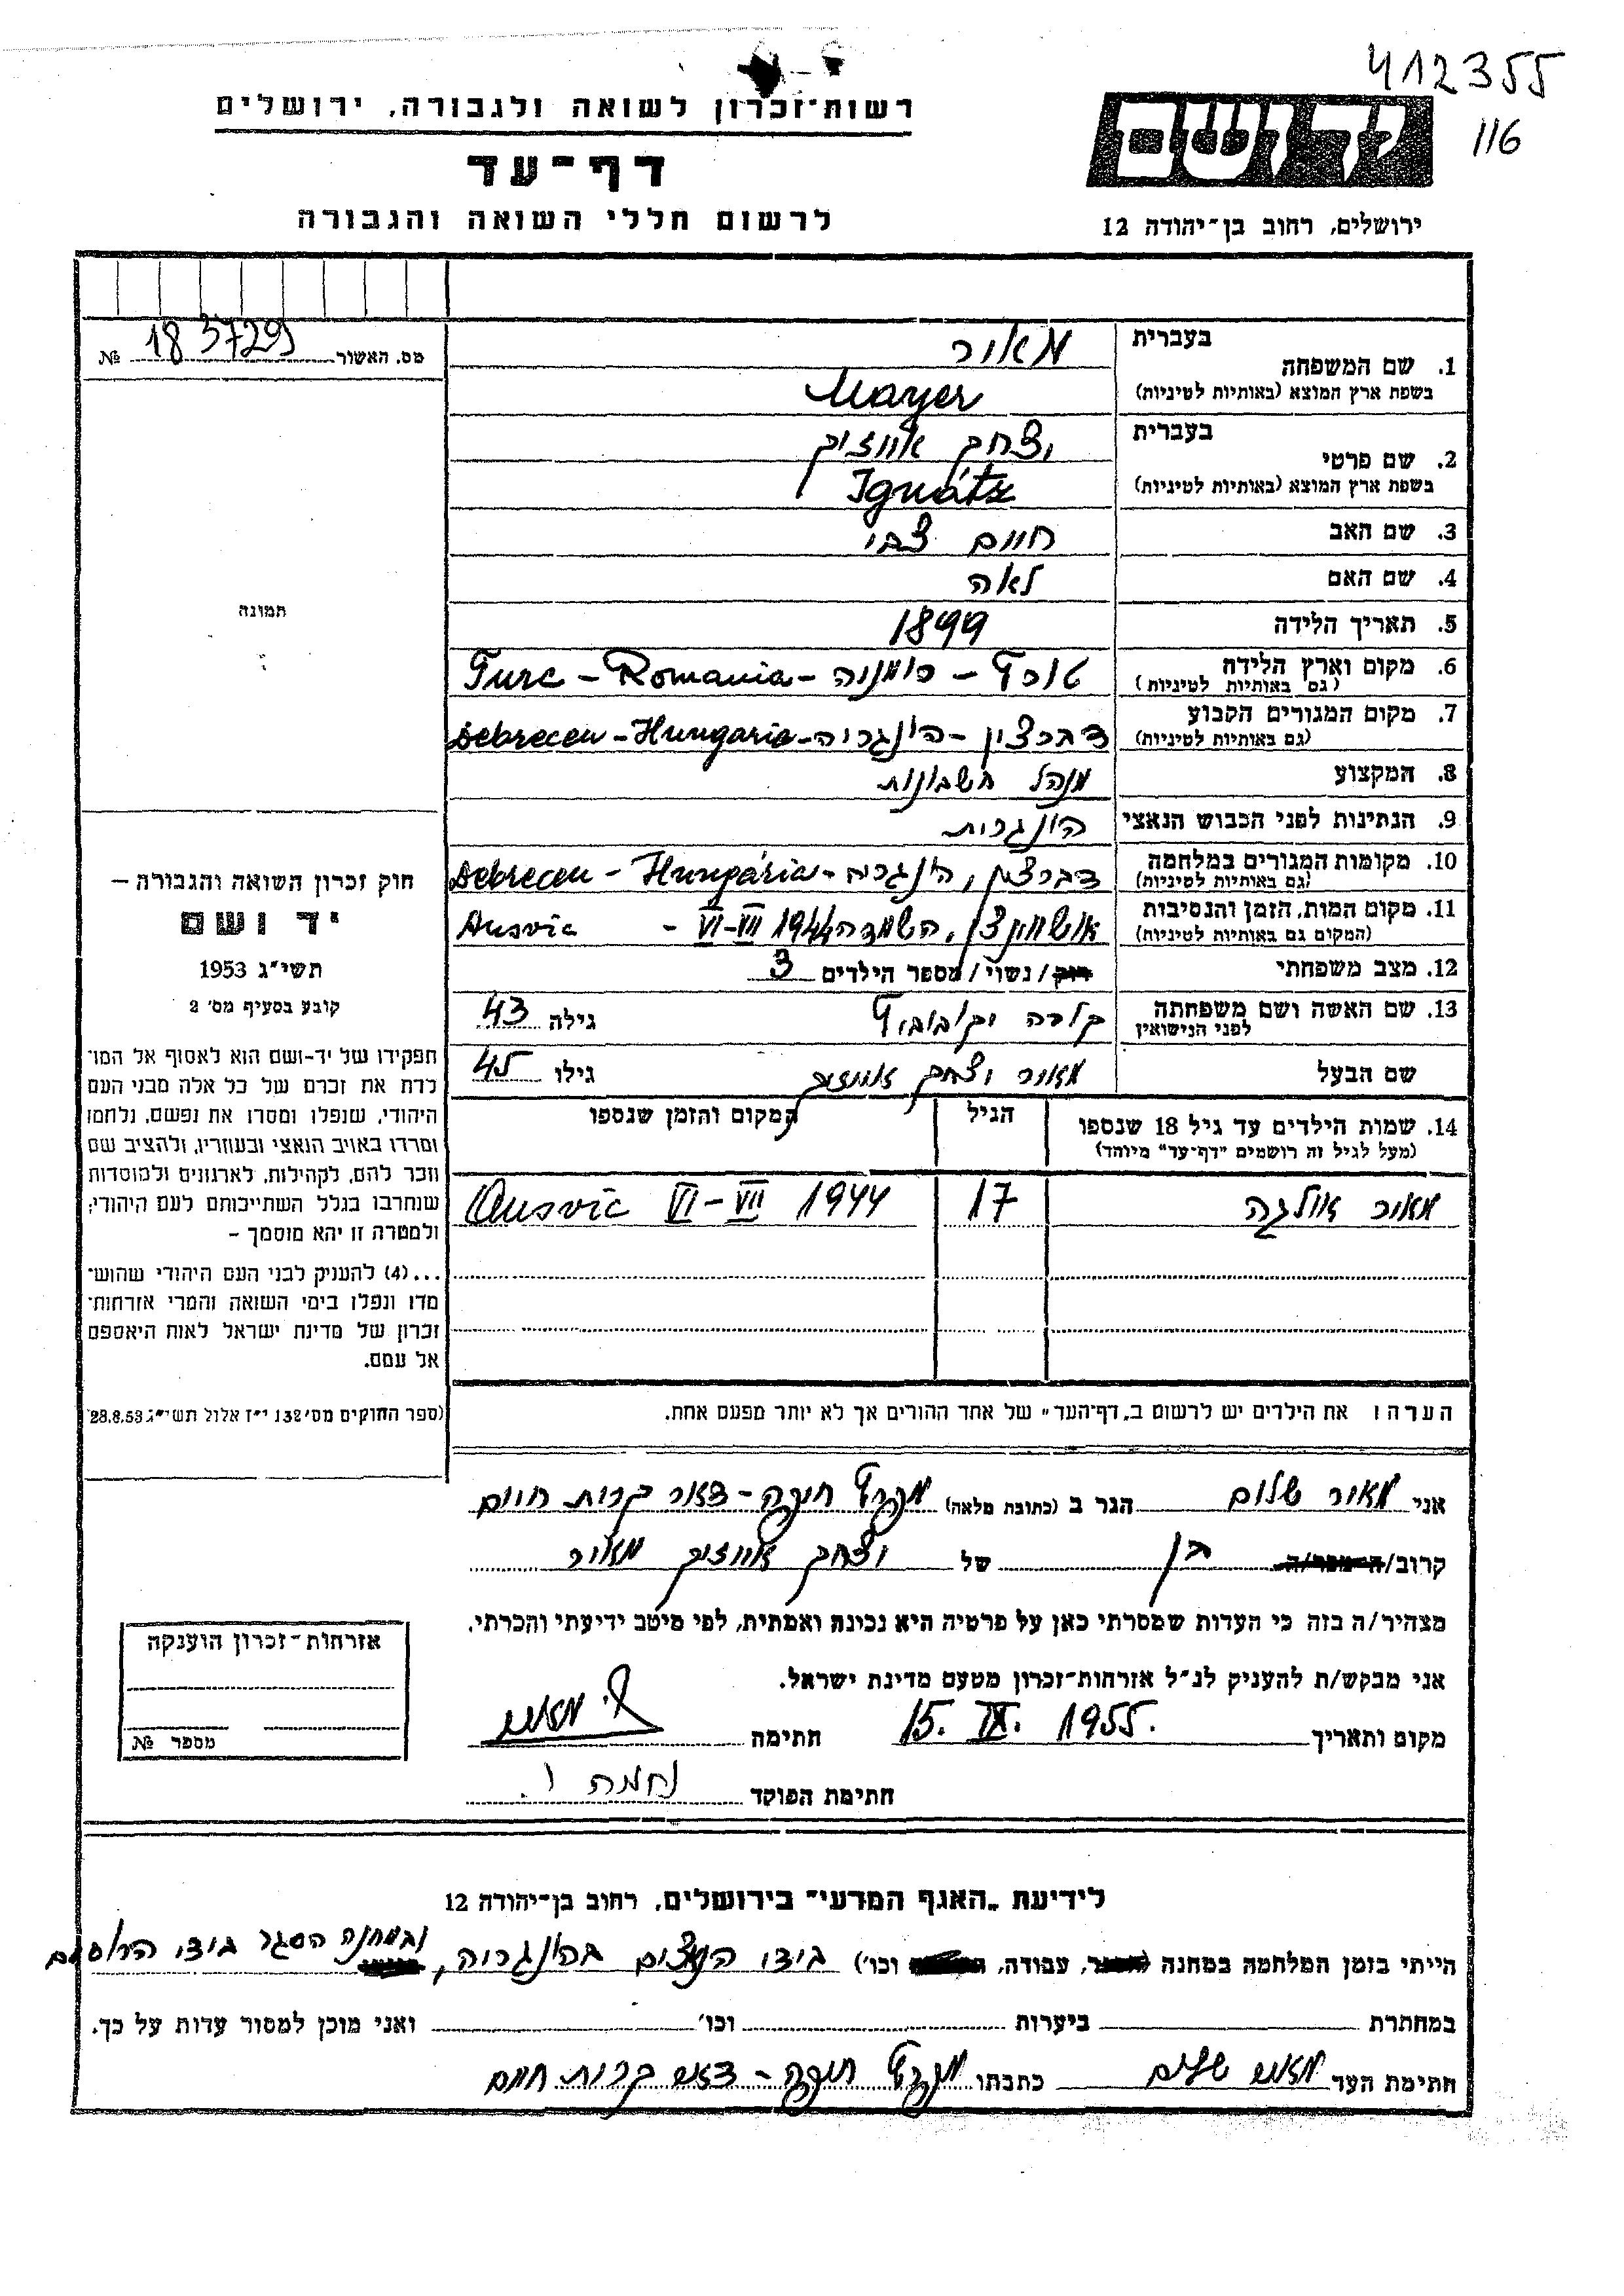 412355
116
רשות־זכרון לשואה ולגבורה, ירושלים
דף־עד
לרשום חללי השואה והגבורה
ידושם
ירושלים, רחוב בן־יהודה 12
מס. האשור 183729 №
תמונה
חוק זכרון השואה והגבורה —
יד ושם
תשי"ג 1953
קובע בסעיף מס' 2
תפקידו של יד-ושם הוא לאסוף אל המו־
לדת את זכרם של כל אלה מבני העם
היהודי, שנפלו ומסרו את נפשם, נלחמו
ומרדו באויב הנאצי ובעוזריו, ולהציב שם
וזכר להם, לקהילות, לארגונים ולמוסדות
שנחרבו בגלל השתייכותם לעם היהודי;
ולמטרה זו יהא מוסמך —
...(4) להעניק לבני העם היהודי שהוש־
מדו ונפלו בימי השואה והמרי אזרחות־
זכרון של מדינת ישראל לאות היאספם
אל עמם.
(ספר החוקים מס' 132 י"ז אלול תשי"ג 28.8.53)
בעברית מאור
1. שם המשפחה
בשפת ארץ המוצא (באותיות לטיניות) Mayer
בעברית יצחק אייזיק
2. שם פרטי
בשפת ארץ המוצא (באותיות לטיניות) Ignátz
3. שם האב חיים צבי
4. שם האם לאה
5. תאריך הלידה 1899
6. מקום וארץ הלידה טורץ — רומניה — Turc - Romania
(גם באותיות לטיניות)
7. מקום המגורים הקבוע דברצין — הונגריה — Debrecen - Hungaria
(גם באותיות לטיניות)
8. המקצוע מנהל חשבונות
9. הנתינות לפני הכבוש הנאצי הונגרית
10. מקומות המגורים במלחמה דברצין, הונגריה — Debrecen - Hungária
(גם באותיות לטיניות)
11. מקום המות, הזמן והנסיבות אושויץ, השמדה 1944 VI-VII - Ausvic
(המקום גם באותיות לטיניות)
12. מצב משפחתי רוק/נשוי/מספר הילדים 3
13. שם האשה ושם משפחתה גילה 43
לפני הנישואין
שם הבעל מאור יצחק אייזיק גילו 45
14. שמות הילדים עד גיל 18 שנספו הגיל המקום והזמן שנספו
(מעל לגיל זה רושמים "דף־עד" מיוחד)
מאור אולגה 17 Ausvic VI-VII 1944
הערה: את הילדים יש לרשום ב„דף־העד" של אחד ההורים אך לא יותר מפעם אחת.
אני מאור שלום הגר ב (כתובת מלאה) חיפה — דאר קרית חיים
קרוב/ה בן של יצחק אייזיק מאור
מצהיר/ה בזה כי העדות שמסרתי כאן על פרטיה היא נכונה ואמתית, לפי מיטב ידיעתי והכרתי.
אני מבקש/ת להעניק לנ"ל אזרחות־זכרון מטעם מדינת ישראל.
מקום ותאריך 15. IX. 1955. חתימה ש. מאור
חתימת הפוקד נחמה י.
אזרחות־זכרון הוענקה
מספר №
לידיעת „האגף המדעי" בירושלים, רחוב בן־יהודה 12
הייתי בזמן המלחמה במחנה עבודה, וכו') בידי הנאצים בהונגריה, ובמחנה הסגר בידי הרוסים
במחתרת ביערות וכו' ואני מוכן למסור עדות על כך.
חתימת העד מאור שלום כתבתו חיפה — דאר קרית חיים